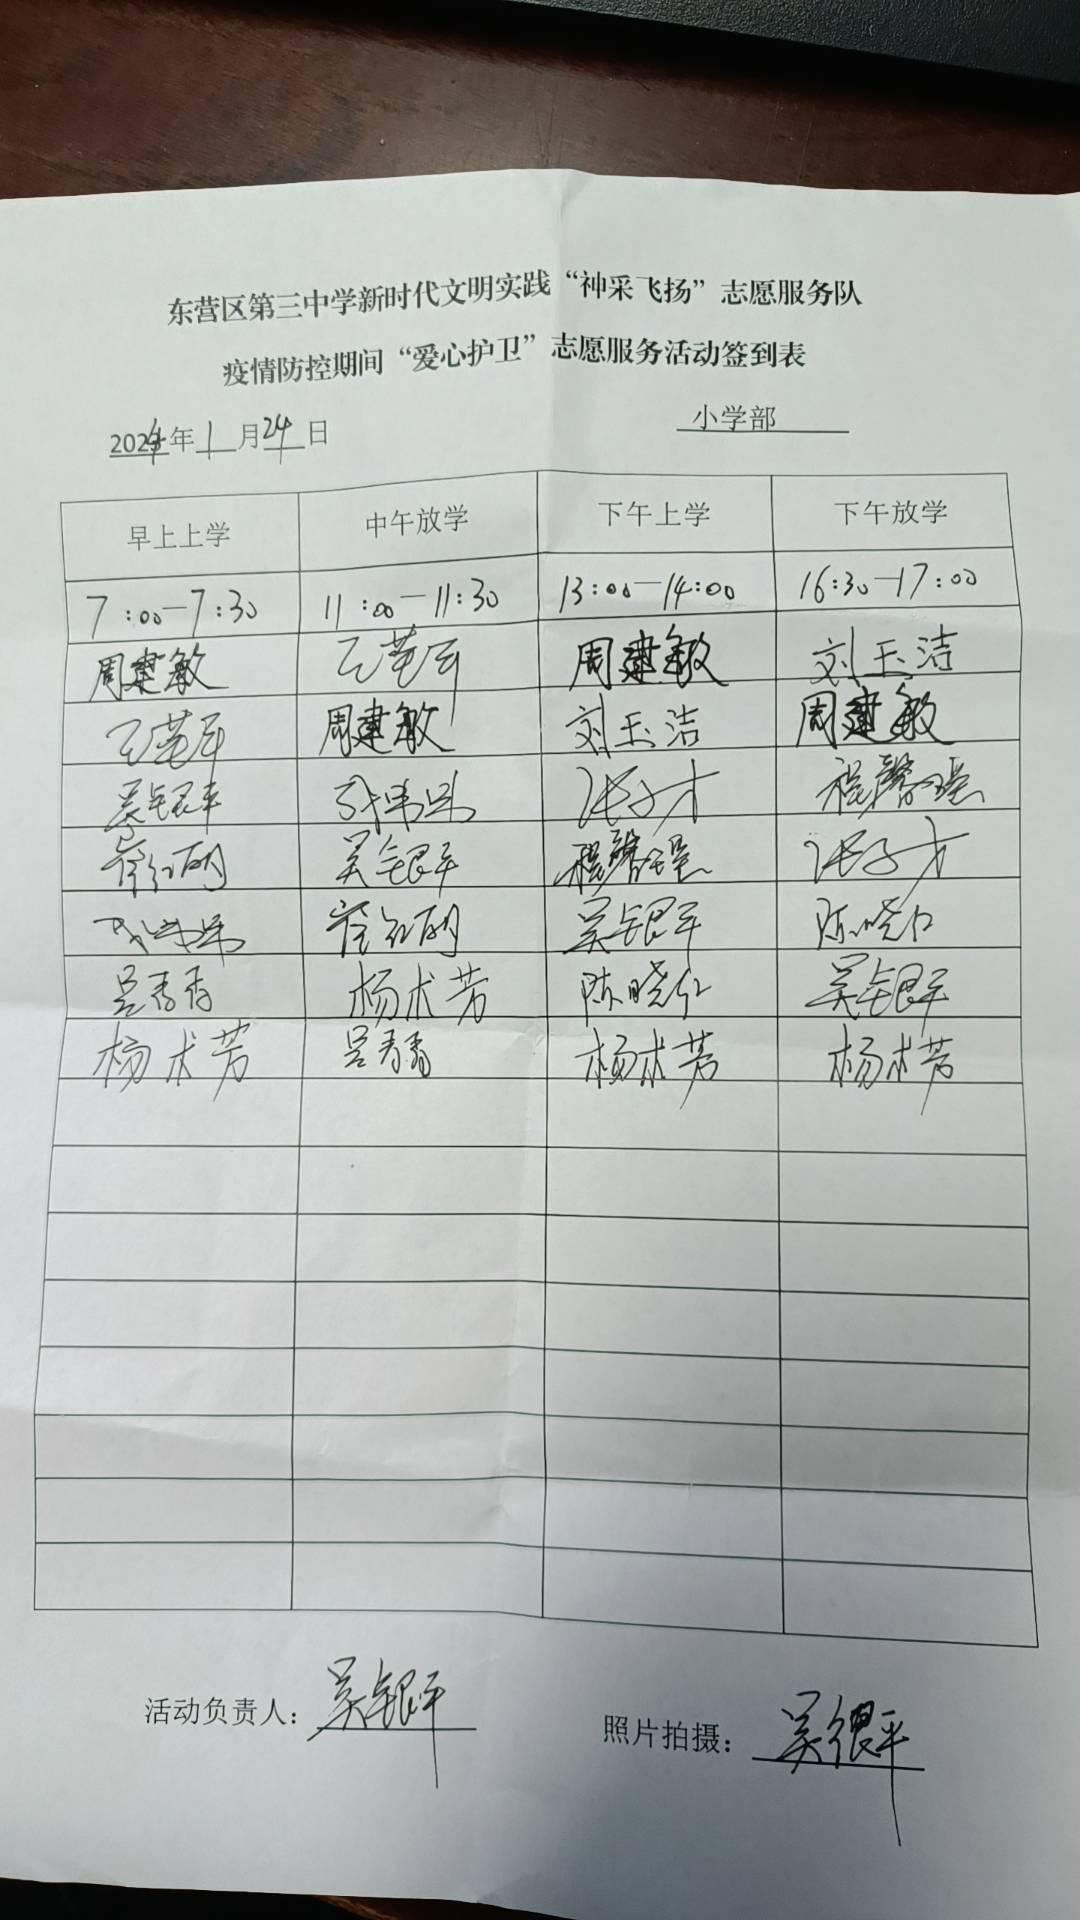 东营区第三中学新时代文明实践“神采飞扬”志愿服务队
疫情防控期间“爱心护卫”志愿服务活动签到表
2024年1月24日 小学部
早上上学 中午放学 下午上学 下午放学
7:00—7:30 11:00—11:30 13:00—14:00 16:30—17:00
周建敏 周建敏 刘玉洁
周建敏 刘玉洁 周建敏
吴银平 程馨瑶
崔红明 吴银平 程馨瑶
崔红明 吴银平 陈晓红
吕青青 杨术芳 陈晓红 吴银平
杨术芳 吕青青 杨术芳 杨术芳
活动负责人：吴银平 照片拍摄：吴银平